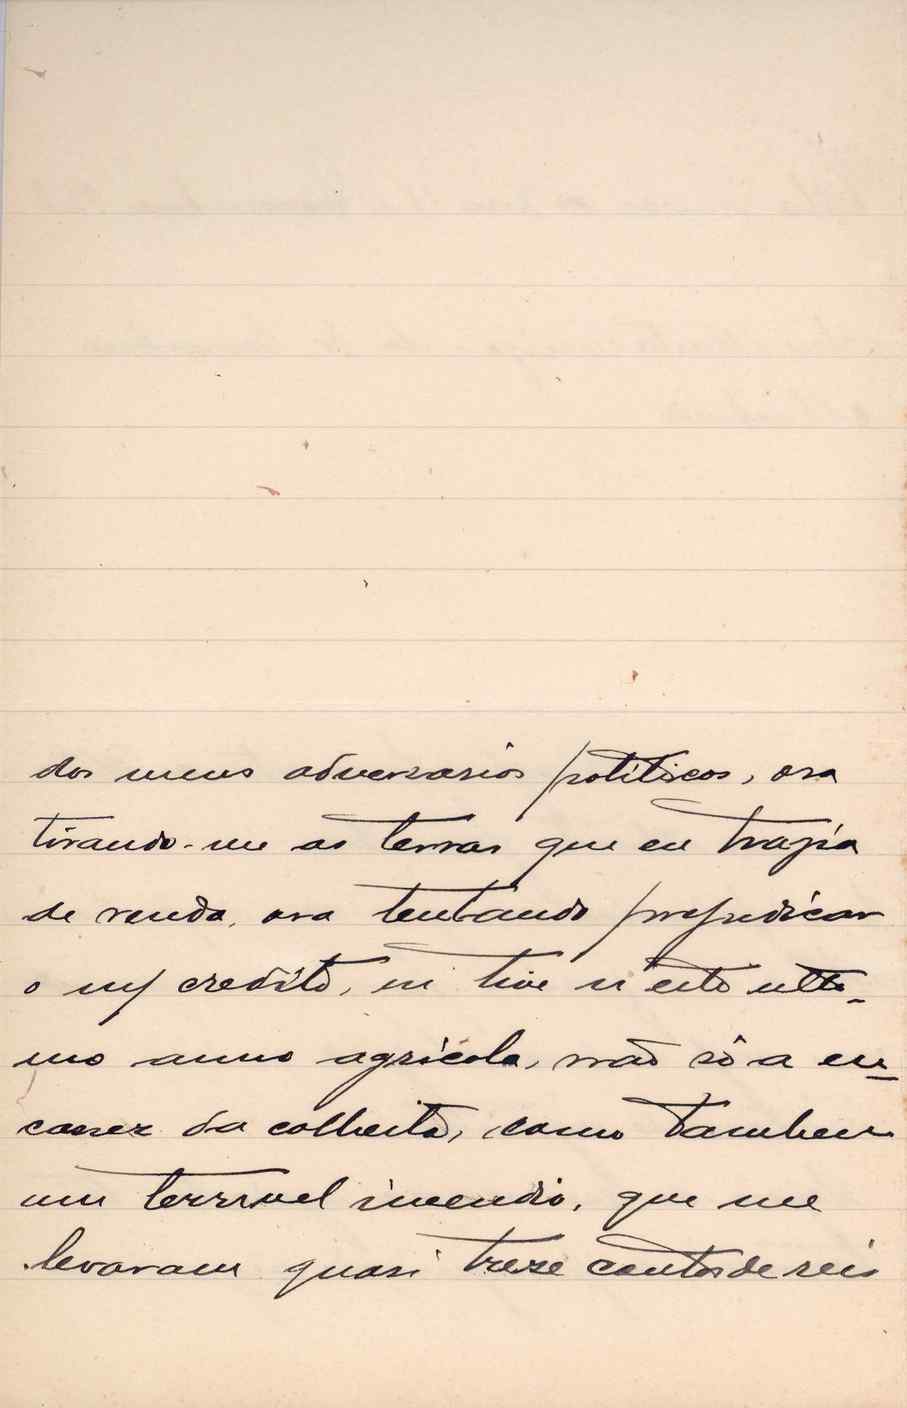 dos meus adversarios politicos, ora
tirando-me as terras que eu trazia
de renda, ora tentando prejudicar
o m/ credito, eu tive n'este ulti-
mo anno agricola, não só a es-
cassez da colheita, como tambem
um terrivel incendio, que me
levaram quasi treze contos de reis